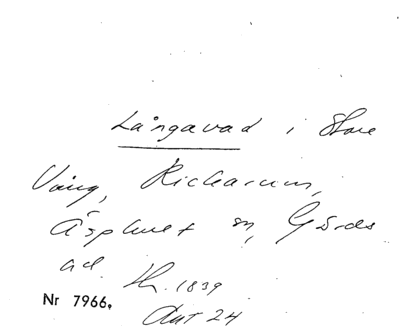 Långavad i Store
Vång, Rickarum,
Äsphult sn, Gärds
hd. Kr. 1839
Akt 24
Nr 7966.